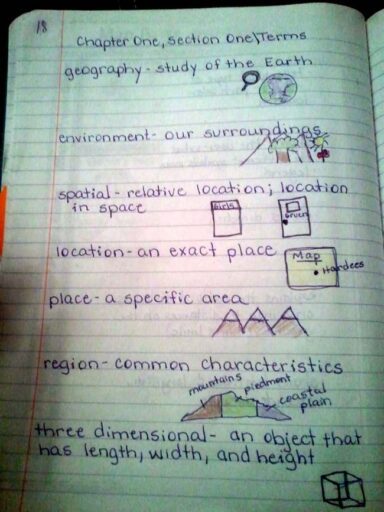 18
Chapter One, Section One\Terms
geography- study of the Earth
environment- our surroundings
spatial- relative location; location
in space
location- an exact place
Map
Hardees
place- a specific area
region- common characteristics
mountains
piedmont
coastal
plain
three dimensional- an object that
has length, width, and height